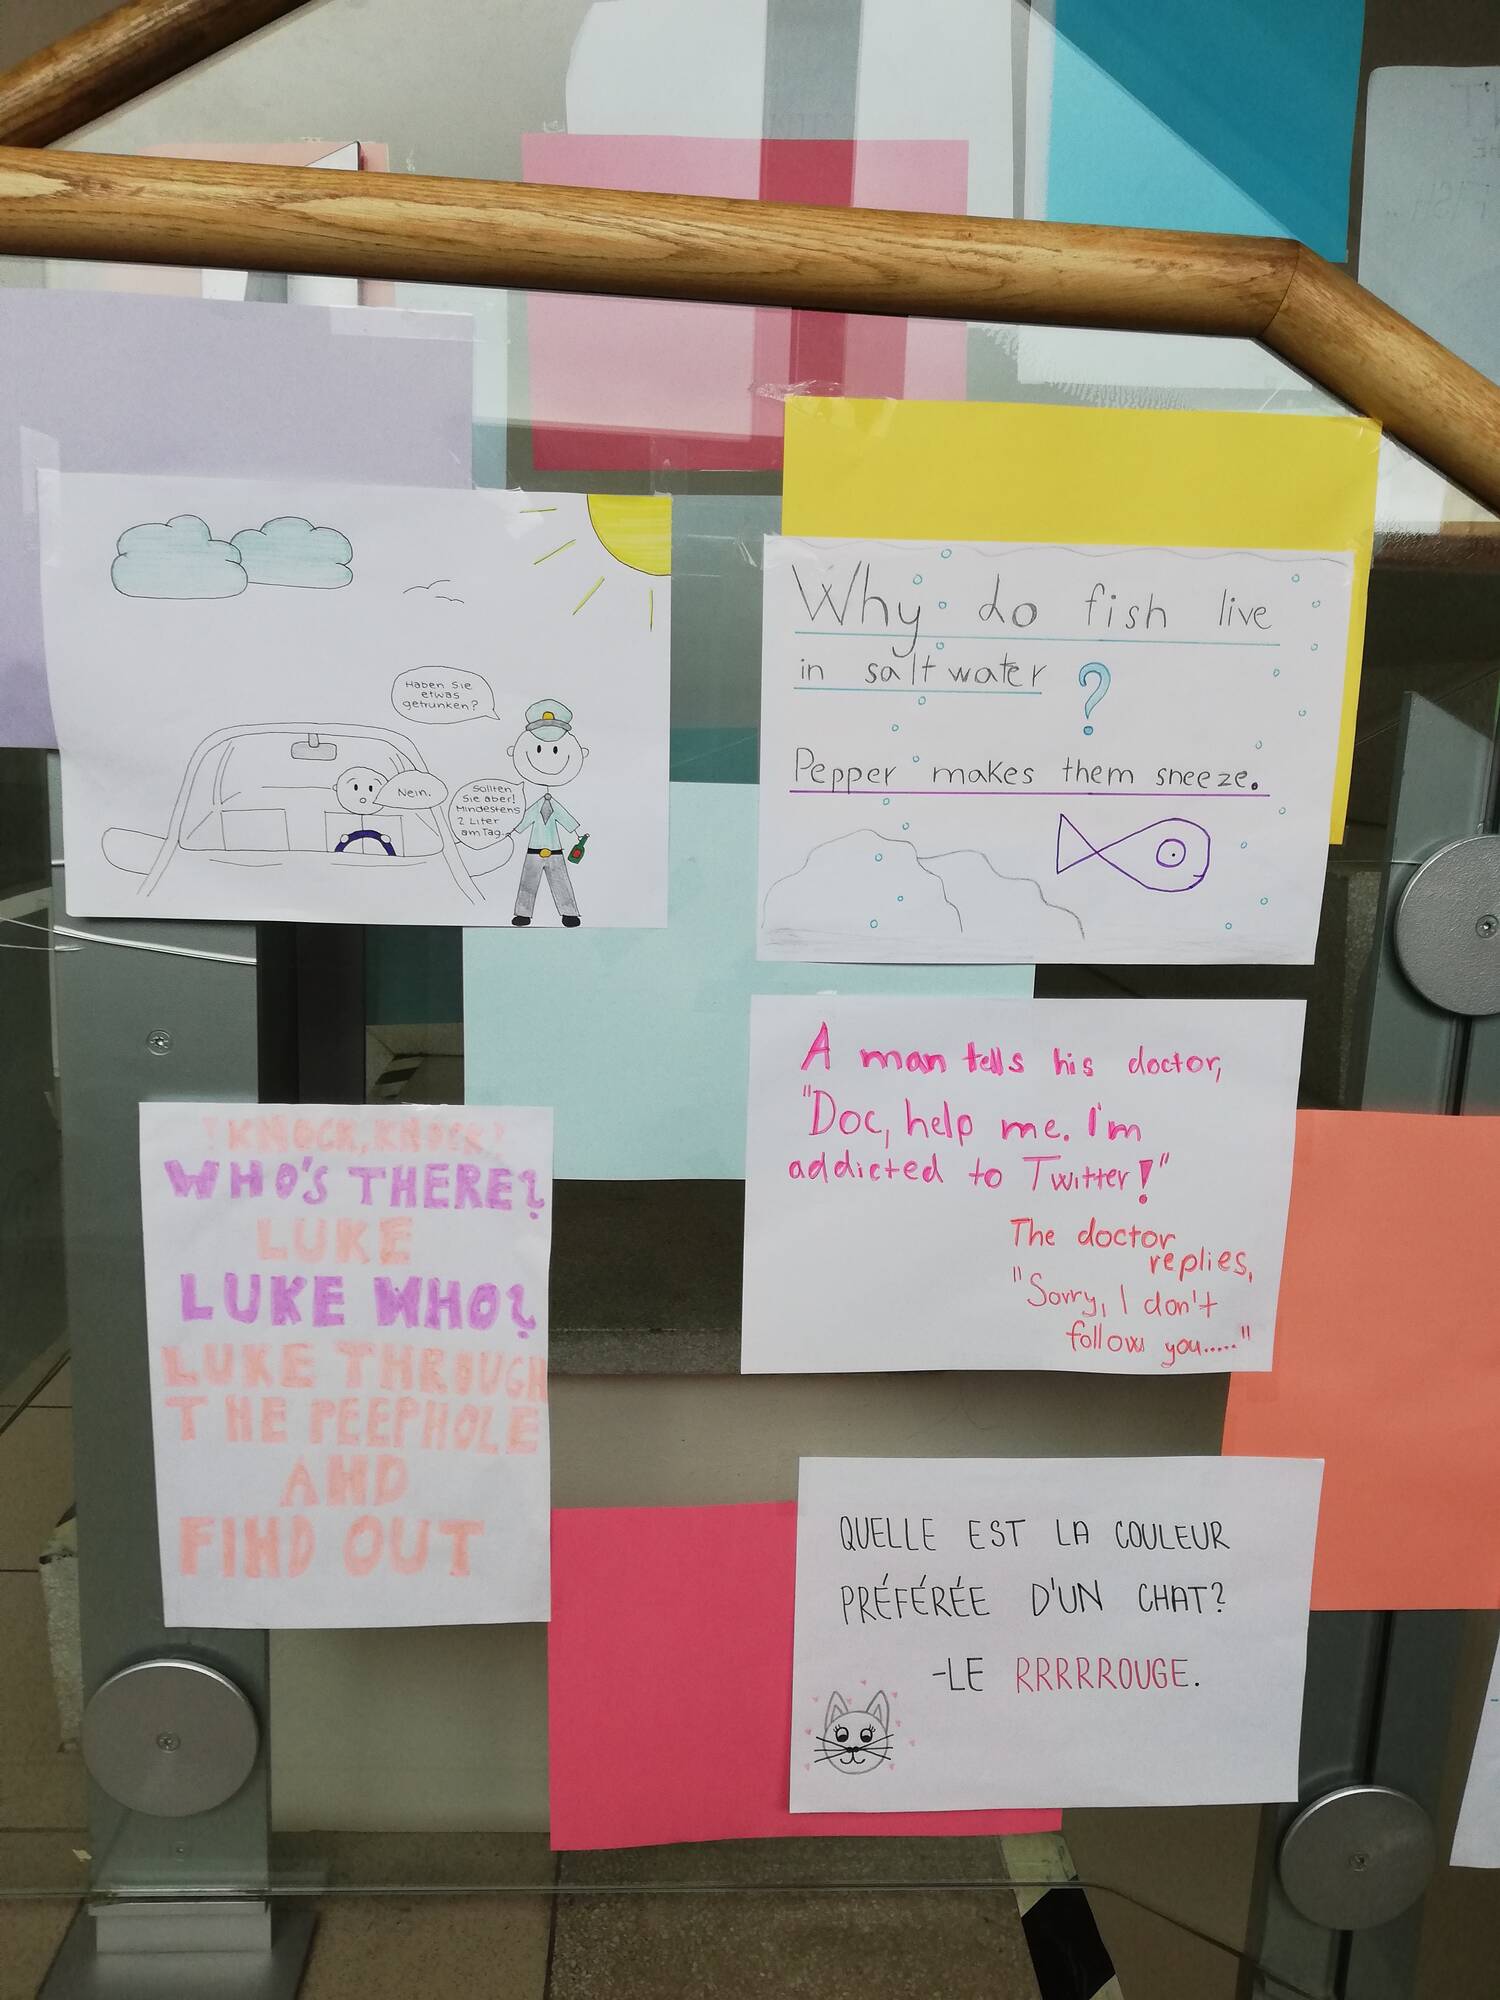 Haben Sie
etwas
getrunken?
Nein.
Sollten
Sie aber!
Mindestens
2 Liter
am Tag.
Why do fish live
in salt water ?
Pepper makes them sneeze.
A man tells his doctor,
"Doc, help me. I'm
addicted to Twitter!"
The doctor
replies,
"Sorry, I don't
follow you....."
!KNOCK, KNOCK!
WHO'S THERE?
LUKE
LUKE WHO?
LUKE THROUGH
THE PEEPHOLE
AND
FIND OUT
QUELLE EST LA COULEUR
PRÉFÉRÉE D'UN CHAT?
-LE RRRRROUGE.